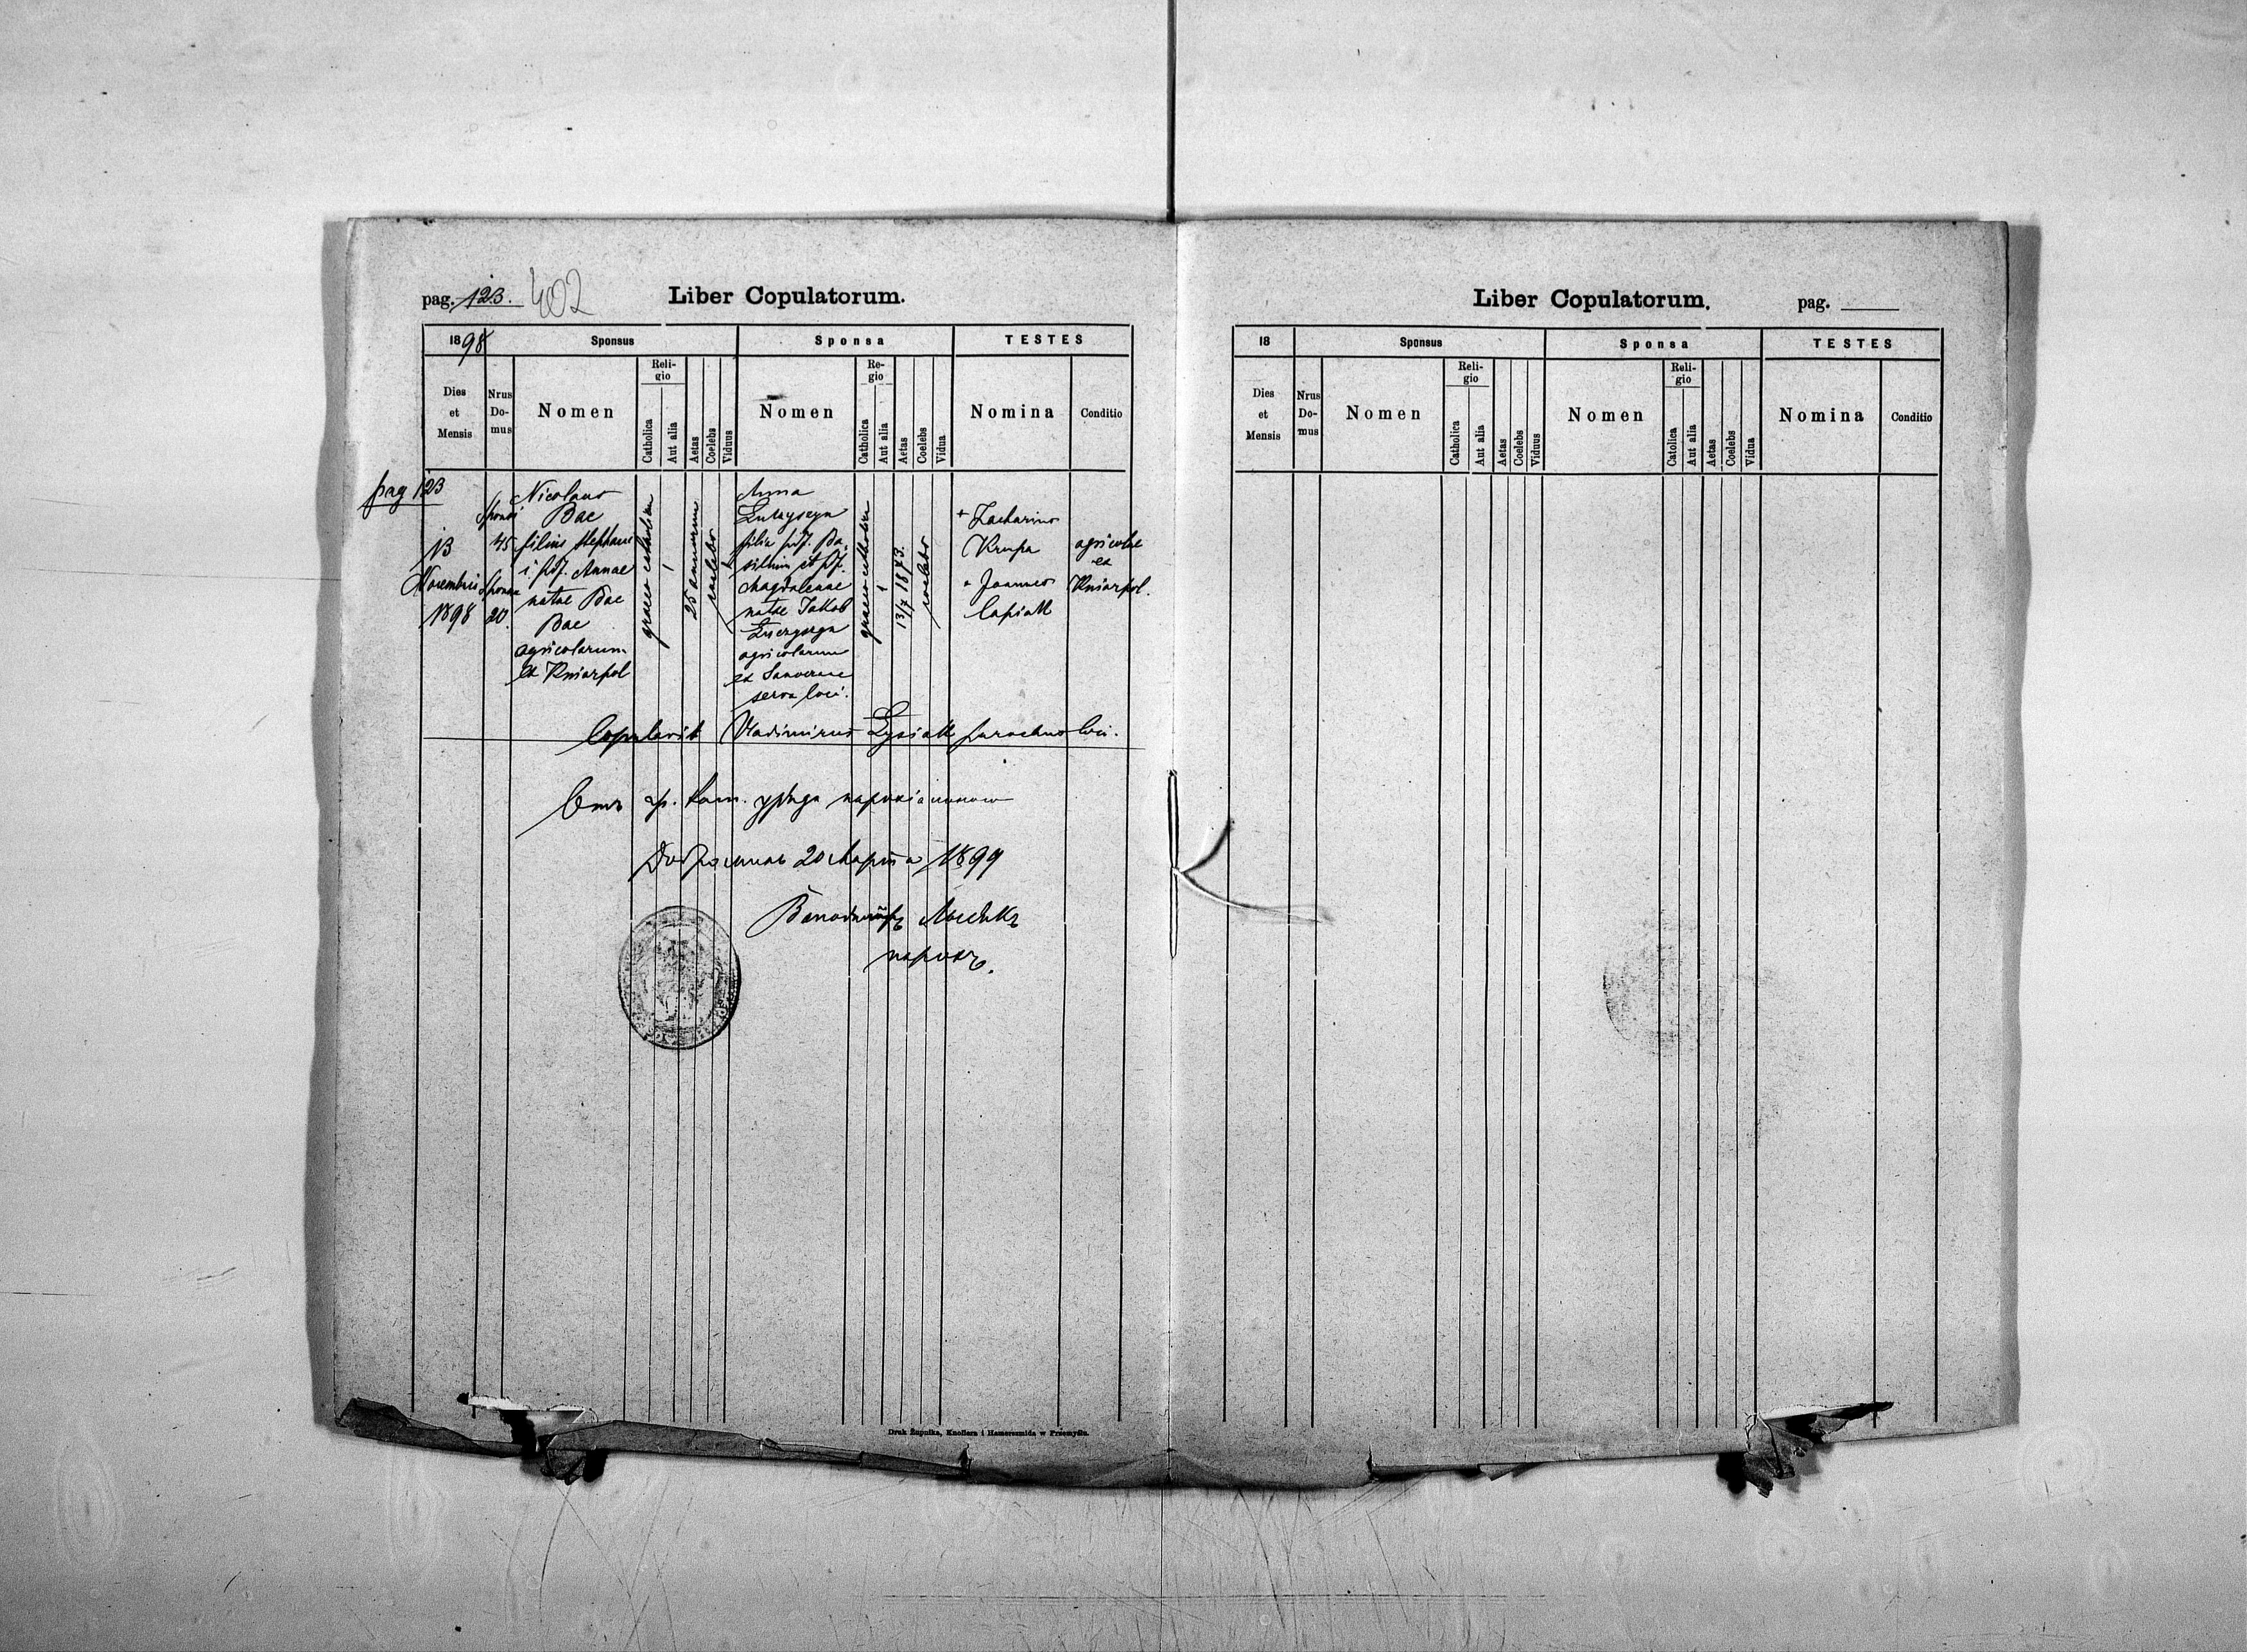 pag. 123. 402
Liber Copulatorum.
1898
Sponsus
Sponsa
TESTES
Dies et Mensis
Nrus Do- mus
Nomen
Reli- gio
Catholica
Aut alia
Aetas
Coelebs
Viduus
Nomen
Re- gio
Catholica
Aut alia
Aetas
Coelebs
Vidua
Nomina
Conditio
pag 123
13
Novembris
1898
Sponsi
45
Sponsae
20.
Nicolaus
Bac
filius Stephani
i. p. d. f. Annae
natae Bac
Bac
agricolarum
ex Kniażpol
graeco catholica
25 annorum
coelebs
Anna
filia
Magdalenae
natae Jakob
agricolarum
ex
serva loci.
graeco catholica
13/7 1873.
coelebs
+ Zacharias
Krupa
+ Joannes
Capiak
agricolae
ex
Kniażpol.
Copulavit Vladimirus Łysiak parochus loci.
Отъ гр. кат. уряда парохіяльного
20 Марта 1899
Володимѣръ Лысякъ
парохъ.
Druk Żupnika, Knollera i Hamerszmida w Przemyślu.
Liber Copulatorum.
pag.
18
Sponsus
Sponsa
TESTES
Dies et Mensis
Nrus Do- mus
Nomen
Reli- gio
Catholica
Aut alia
Aetas
Coelebs
Viduus
Nomen
Reli- gio
Catolica
Aut alia
Aetas
Coelebs
Vidua
Nomina
Conditio